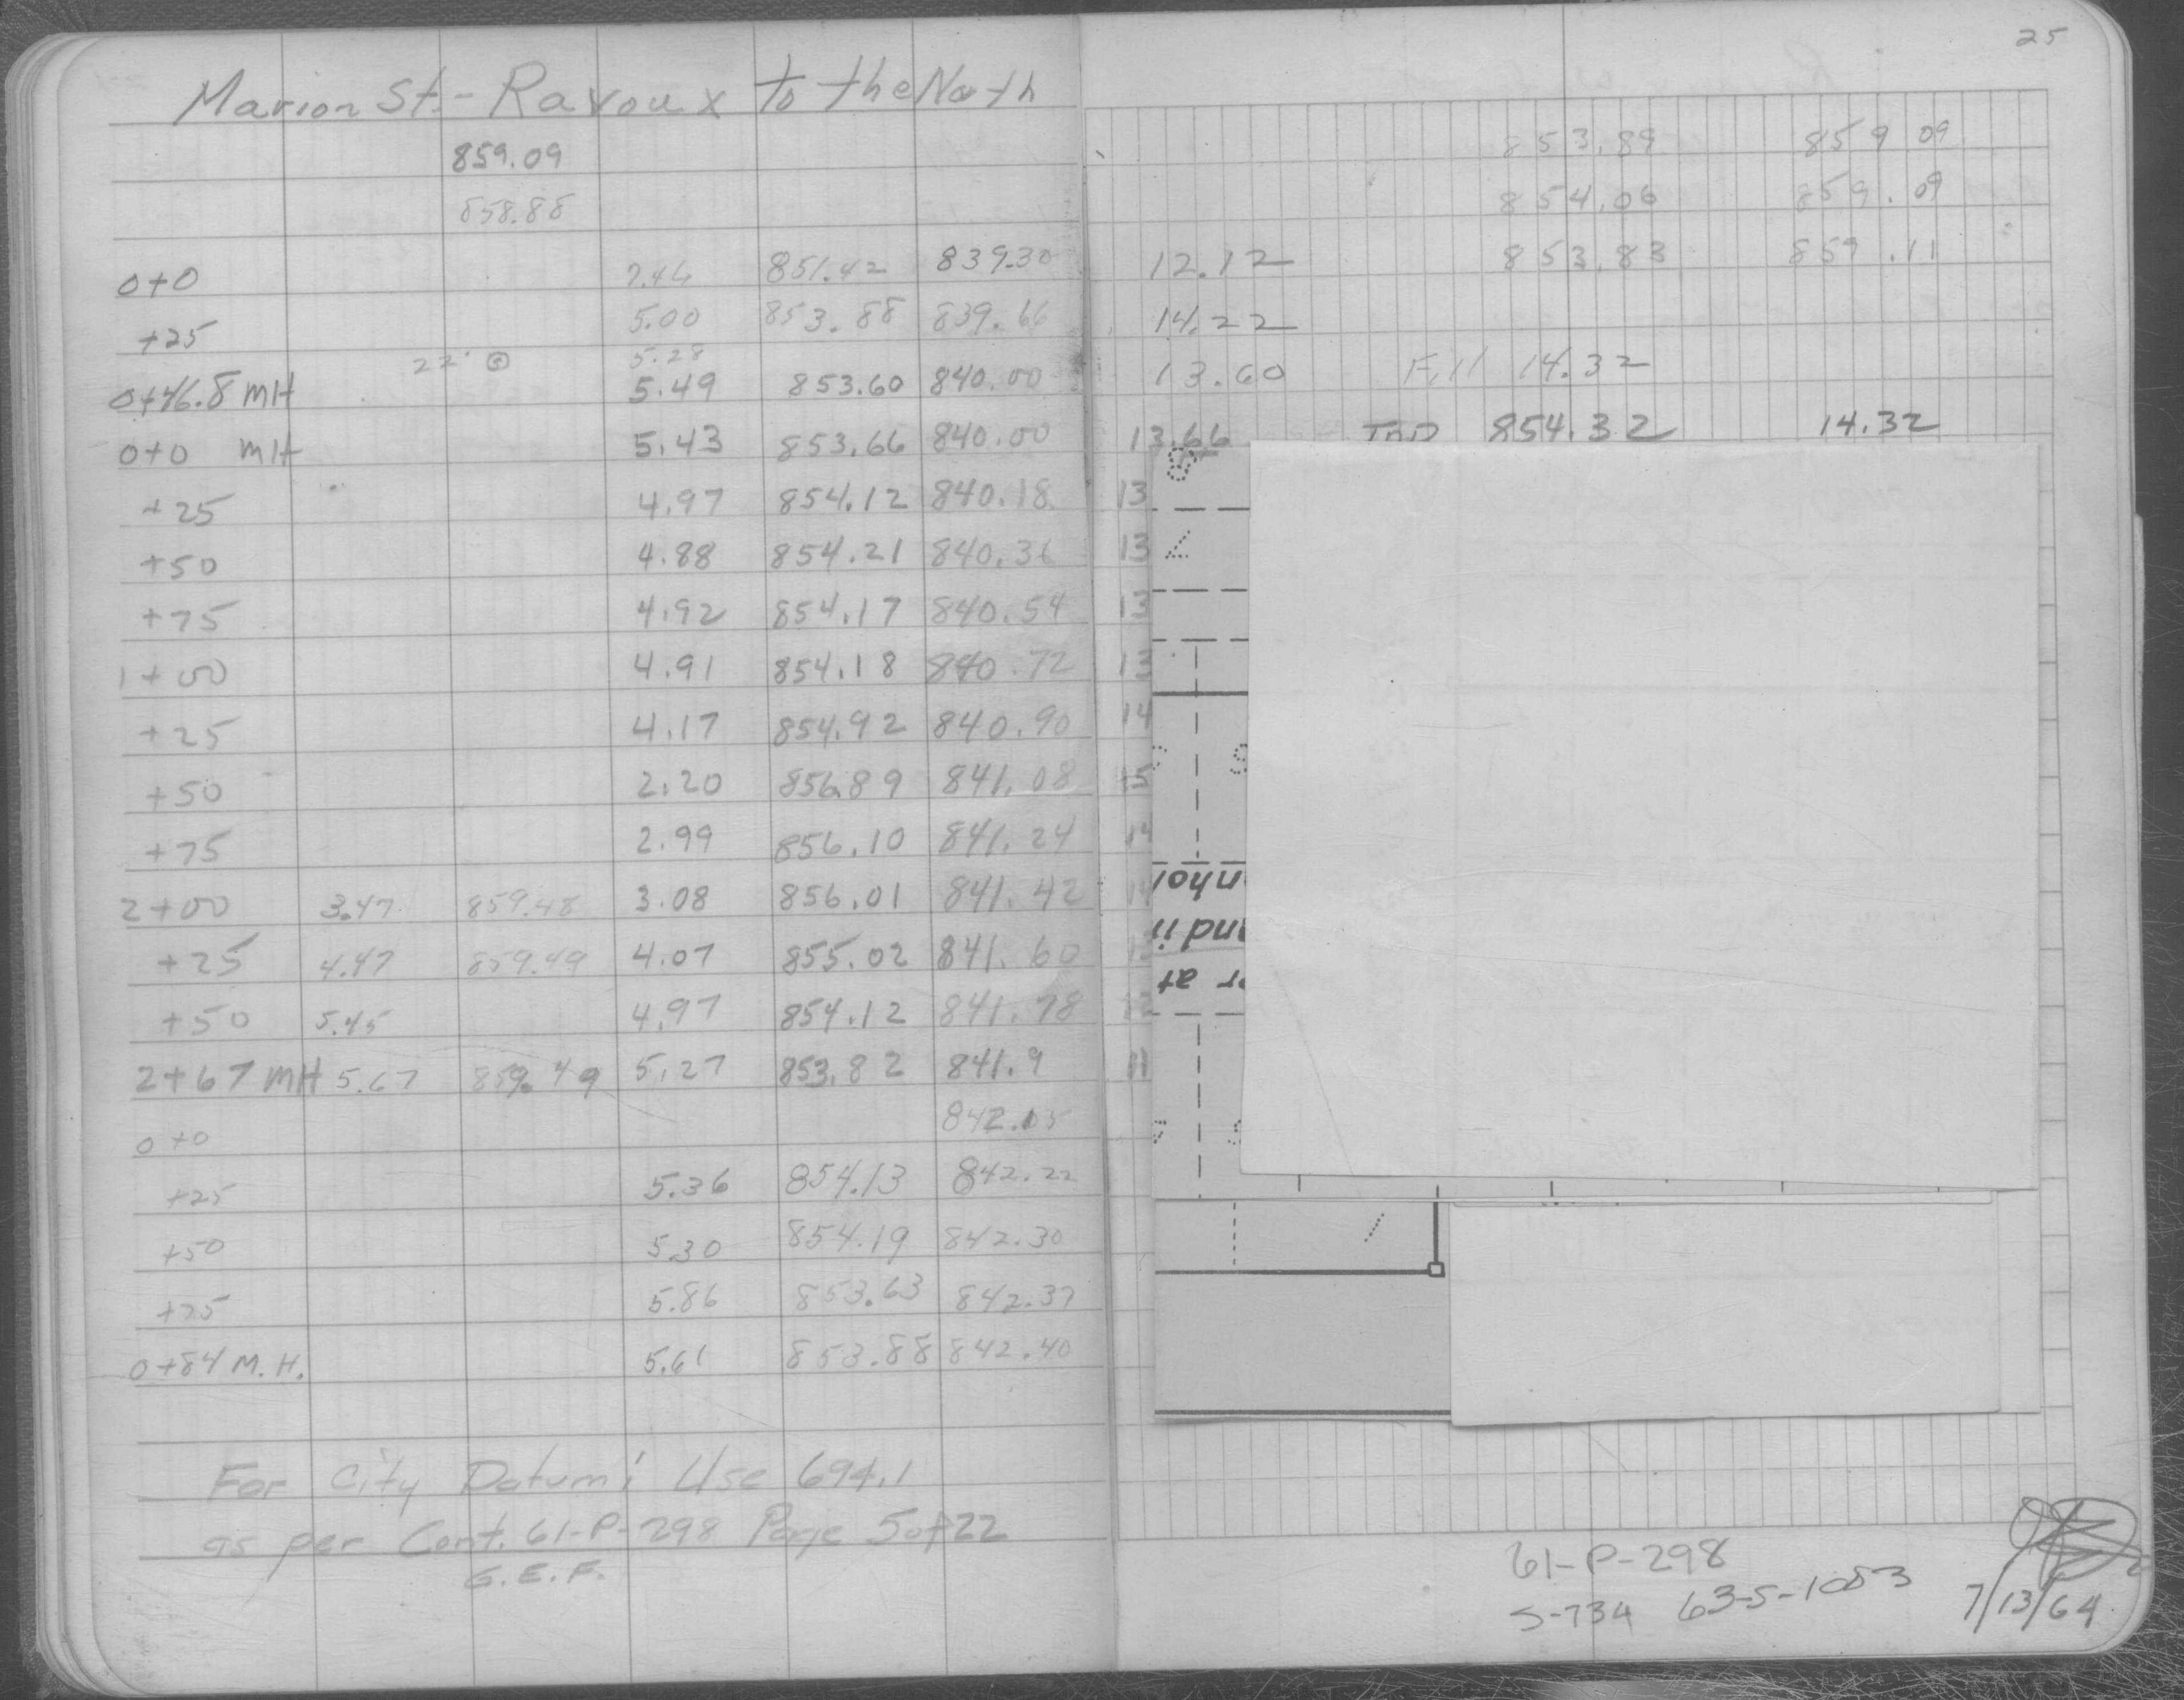 25
Marion St. - Ravoux to the North
859.09 853.89 859.09
858.88 854.06 859.09
0+0 7.46 851.42 839.30 12.12 853.83 859.11
+25 5.00 853.88 839.66 14.22
22' 5.28
0+46.8 MH 5.49 853.60 840.00 13.60 Fill 14.32
0+0 MH 5.43 853.66 840.00 13.66 854.32 14.32
+25 4.97 854.12 840.18 13
+50 4.88 854.21 840.36 13
+75 4.92 854.17 840.54 13
1+00 4.91 854.18 840.72 13
+25 4.17 854.92 840.90 14
+50 2.20 856.89 841.08 15
+75 2.99 856.10 841.24 14
2+00 3.47 859.48 3.08 856.01 841.42 14
+25 4.47 859.49 4.07 855.02 841.60
+50 5.45 4.97 854.12 841.78
2+67 MH 5.67 859.49 5.27 853.82 841.9 11
0+0 842.05
+25 5.36 854.13 842.22
+50 5.30 854.19 842.30
+75 5.86 853.63 842.37
0+84 M.H. 5.61 853.88 842.40
For City Datum: Use 694.1
as per Cont. 61-P-298 Page 5 of 22
G.E.F.
61-P-298
S-734 63-S-1053 7/13/64